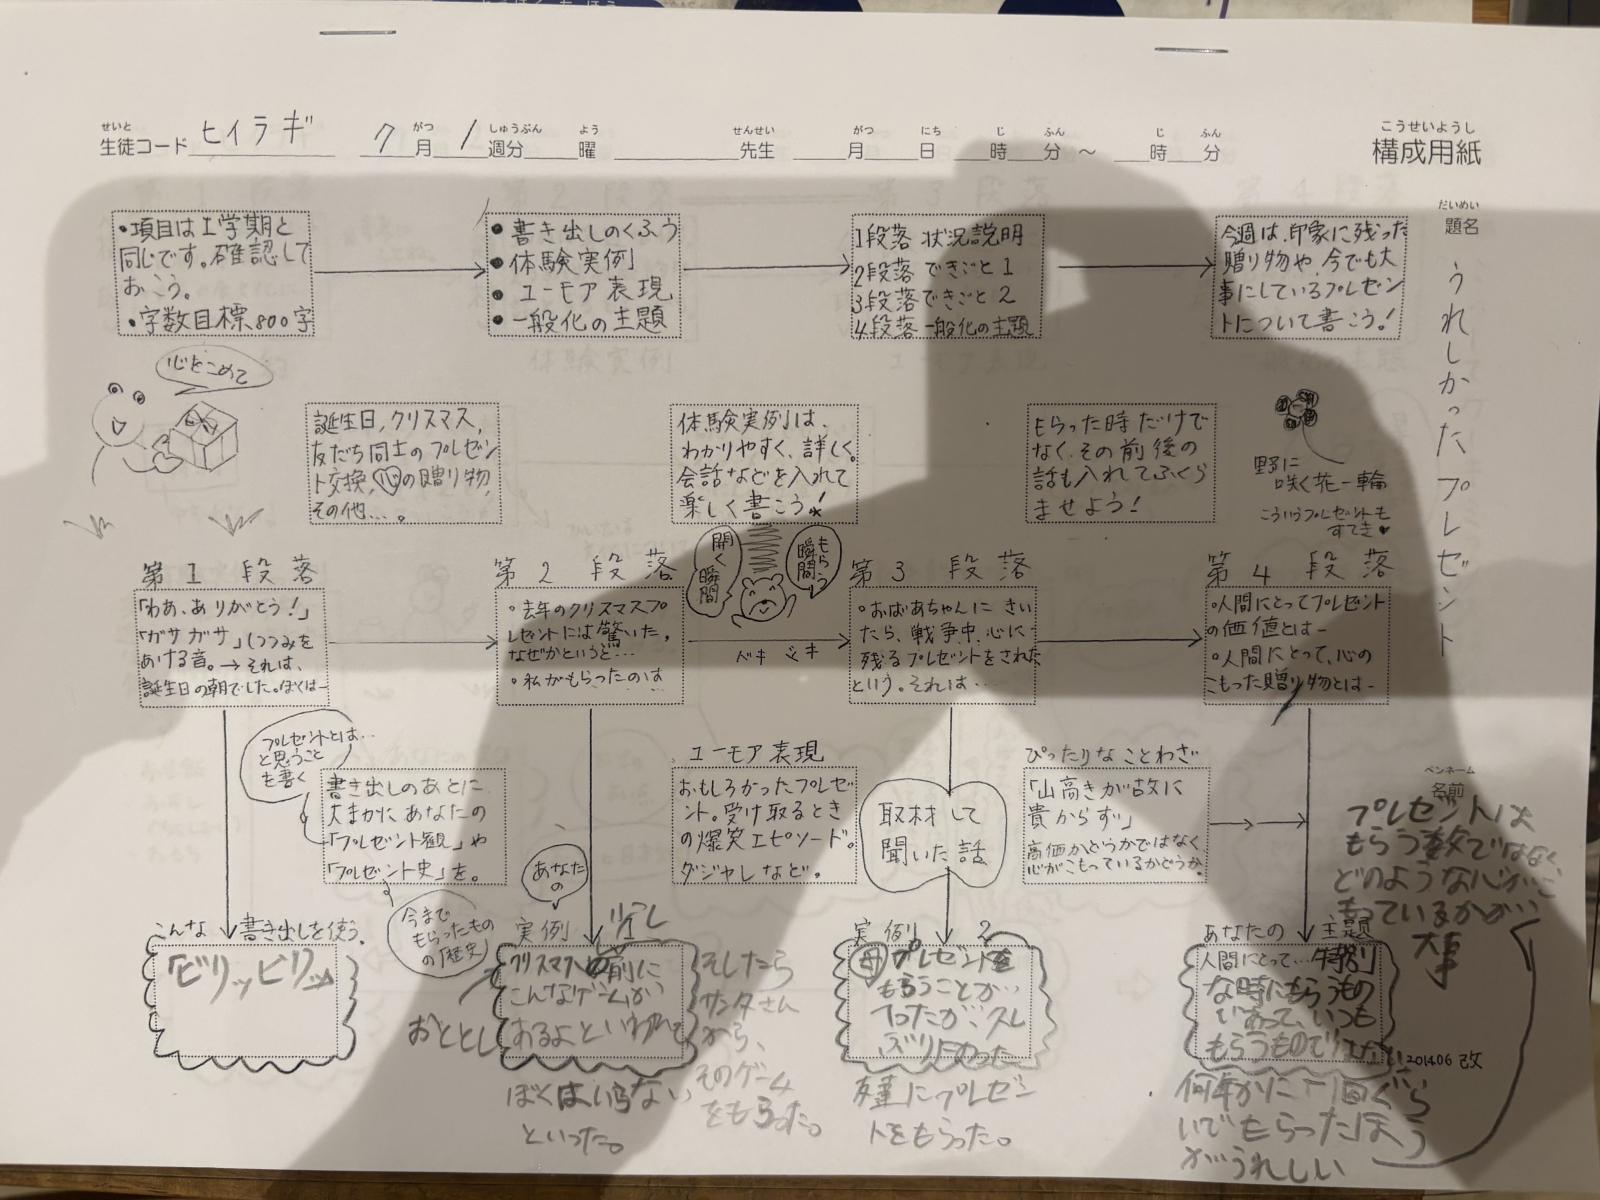 せいと
生徒コード ヒイラギ
がつ しゅうぶん よう
7月 1週分 曜
せんせい がつ にち じ ふん じ ふん
先生 月 日 時 分 ～ 時 分
こうせいようし
構成用紙
だいめい
題名
うれしかったプレゼント
・項目は1学期と
同じです。確認して
おこう。
・字数目標800字
● 書き出しのくふう
● 体験実例
● ユーモア表現
● 一般化の主題
1段落 状況説明
2段落 できごと1
3段落 できごと2
4段落 一般化の主題
今週は、印象に残った
贈り物や、今でも大
事にしているプレゼン
トについて書こう!
心をこめて
誕生日、クリスマス、
友だち同士のプレゼン
ト交換、心の贈り物、
その他…。
体験実例は、
わかりやすく、詳しく。
会話などを入れて
楽しく書こう!
もらった時だけで
なく、その前後の
話も入れてふくら
ませよう!
野に
咲く花一輪
こういうプレゼントも
すてき♥
第1段落
「わあ、ありがとう!」
「ガサガサ」(つつみを
あける音。→それは、
誕生日の朝でした。ぼくは―
第2段落
・去年のクリスマスプ
レゼントには驚いた。
なぜかというと…
・私がもらったのは
開く瞬間
もらう瞬間
第3段落
・おばあちゃんにきい
たら、戦争中、心に
残るプレゼントをされた
という。それは…
第4段落
・人間にとってプレゼント
の価値とは―
・人間にとって、心の
こもった贈り物とは―
プレゼントとは…
と思うこと
も書く
書き出しのあとに、
大まかにあなたの
「プレゼント観」や
「プレゼント史」を。
今まで
もらったもの
の「歴史」
ユーモア表現
おもしろかったプレゼ
ント。受け取るとき
の爆笑エピソード。
ダジャレなど。
取材して
聞いた話
ぴったりなことわざ
「山高きが故に
貴からず」
高価かどうかではなく
心がこもっているかどうか。
ペンネーム
名前
プレゼントは
もらう数ではなく
どのような心がこ
もっているかが…
大事
こんな書き出しを使う。
「ビリッビリッ」
あなたの
実例 1
クリスマスの前に
こんなゲームが
あるよといわれて
おととし
ぼくはいらない
といった。
そしたら
サンタさん
から、
そのゲーム
をもらった。
実例 2
母 プレゼントを
もらうことが
友達にプレゼン
トをもらった。
あなたの主題
人間にとって…特別
な時にもらうもの
であって、いつも
もらうものでは
何年かに一回ぐらい
いでもらったほう
がうれしい
201406 改